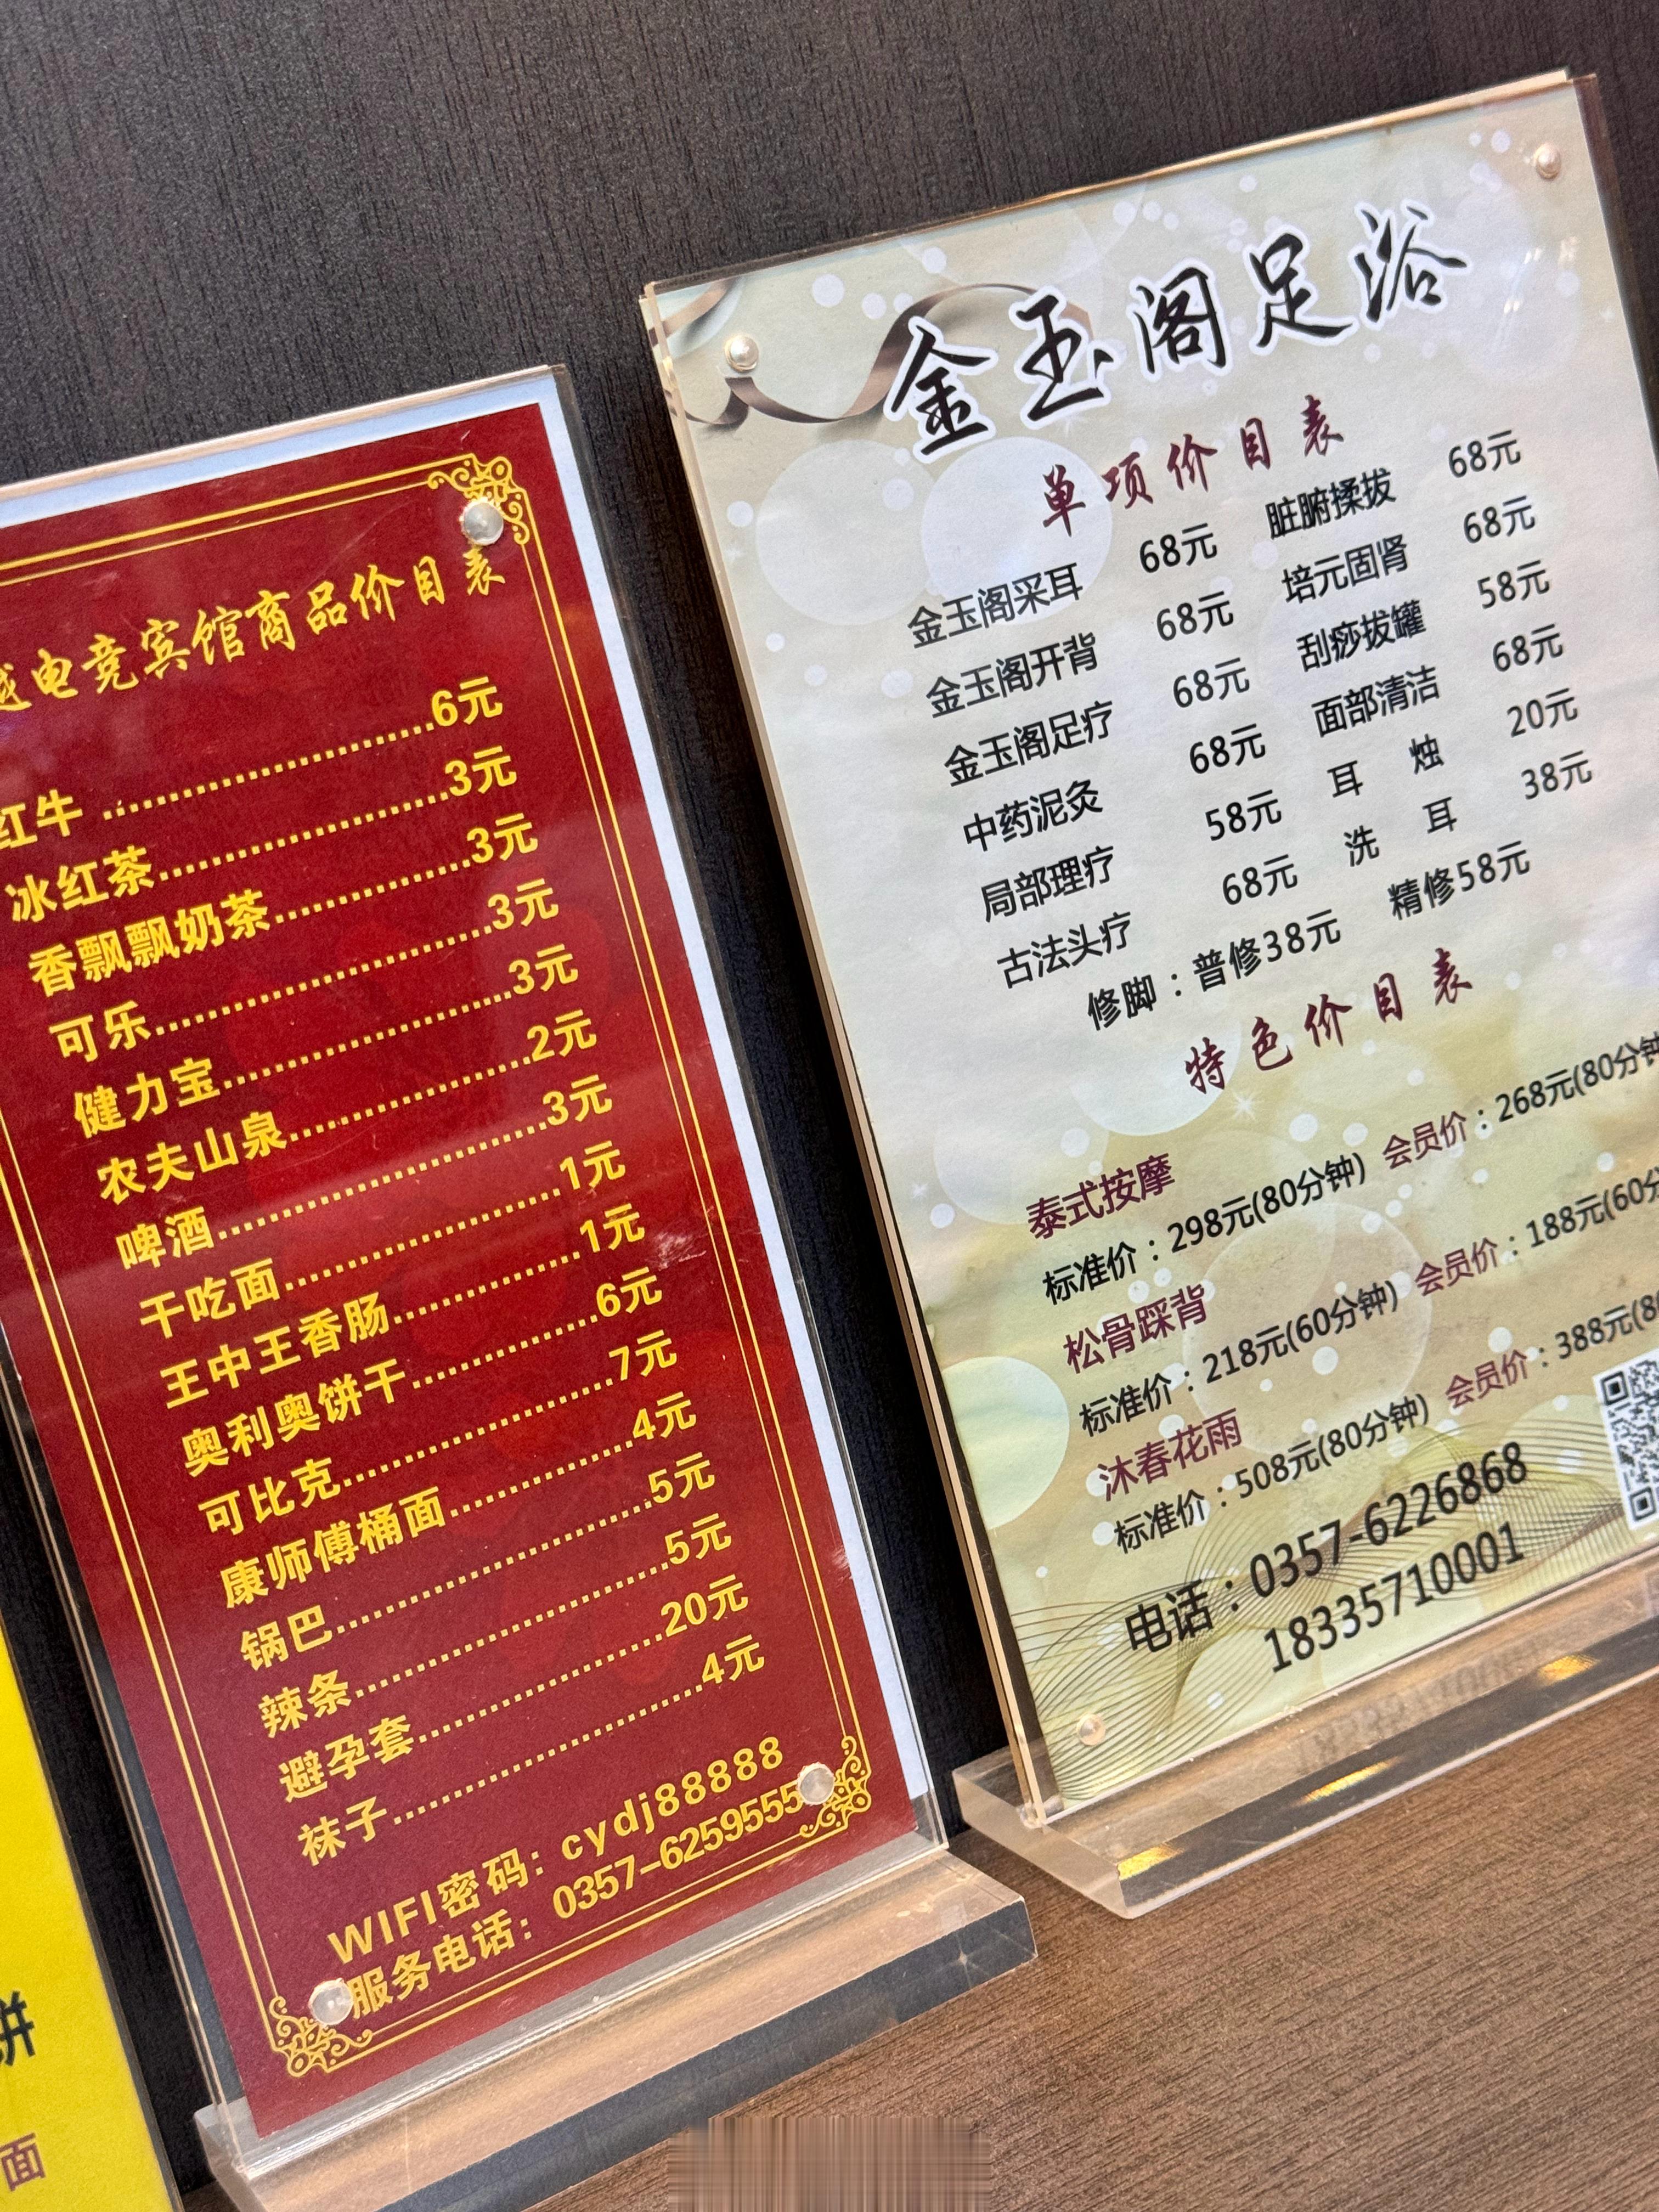 越电竞宾馆商品价目表
红牛 ........................6元
冰红茶........................3元
香飘飘奶茶........................3元
可乐........................3元
健力宝........................3元
农夫山泉........................2元
啤酒........................3元
干吃面........................1元
王中王香肠........................1元
奥利奥饼干........................6元
可比克........................7元
康师傅桶面........................4元
锅巴........................5元
辣条........................5元
避孕套........................20元
袜子........................4元
WIFI密码: cydj88888
服务电话: 0357-6259555
金玉阁足浴
单项价目表
金玉阁采耳 68元 脏腑揉拔 68元
金玉阁开背 68元 培元固肾 68元
金玉阁足疗 68元 刮痧拔罐 58元
中药泥灸 68元 面部清洁 68元
局部理疗 58元 耳烛 20元
古法头疗 68元 洗耳 38元
修脚：普修38元 精修58元
特色价目表
泰式按摩
标准价：298元(80分钟) 会员价：268元(80分钟
松骨踩背
标准价：218元(60分钟) 会员价：188元(60分
沐春花雨
标准价：508元(80分钟) 会员价：388元(80
电话：0357-6226868
18335710001
饼
面